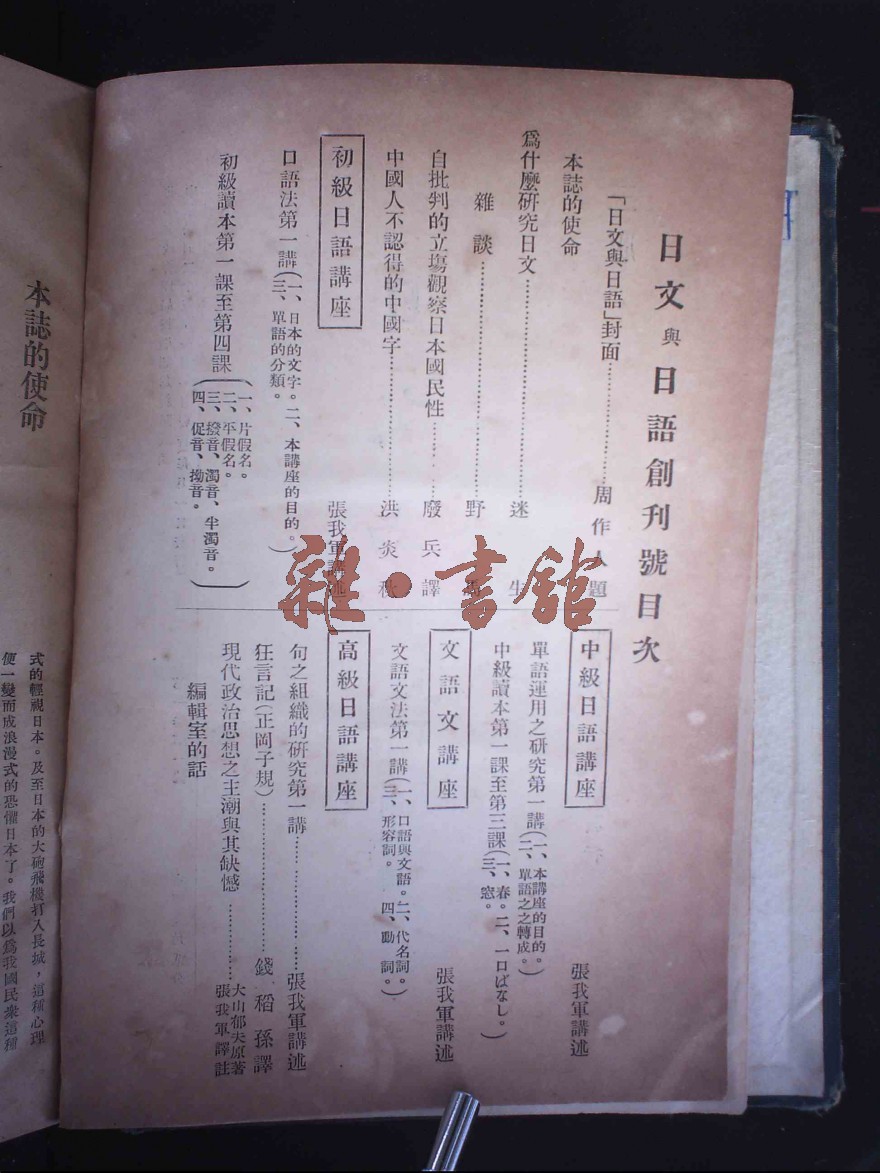 日文與日語創刊號目次
「日文與日語」封面……周作人題
本誌的使命
爲什麼硏究日文……迷生
雜談……野
自批判的立場觀察日本國民性……廢兵譯
中國人不認得的中國字……洪炎秋
初級日語講座
張我軍講述
口語法第一講(一、日本的文字。二、本講座的目的。
三、單語的分類。)
初級讀本第一課至第四課
(一、片假名。
二、平假名。
三、撥音、濁音、半濁音。
四、促音、拗音。)
中級日語講座
張我軍講述
單語運用之硏究第一講(一、本講座的目的。
二、單語之轉成。)
中級讀本第一課至第三課(一、春。二、一口ばなし。
三、窓。)
文語文講座
張我軍講述
文語文法第一講(一、口語與文語。二、代名詞。
三、形容詞。四、動詞。)
高級日語講座
句之組織的硏究第一講……張我軍講述
狂言記(正岡子規)……錢稻孫譯
現代政治思想之主潮與其缺憾……大山郁夫原著
張我軍譯註
編輯室的話
雜·書館
本誌的使命
式的輕視日本。及至日本的大砲飛機打入長城，這種心理
便一變而成浪漫式的恐懼日本了。我們以爲我國民衆這種